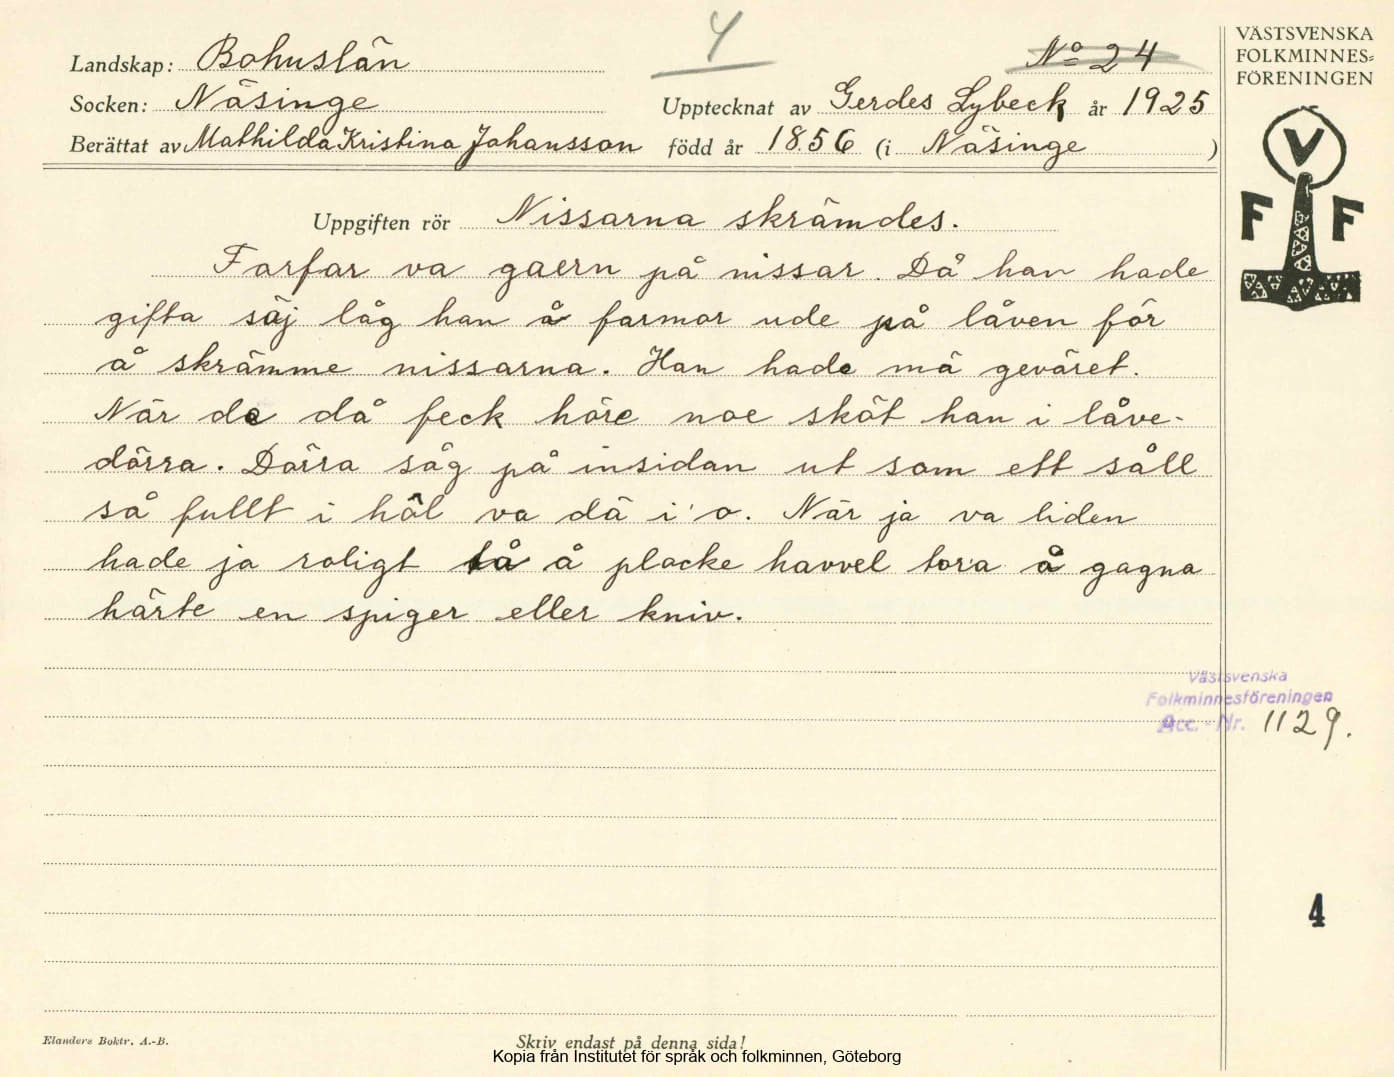 4
No 24
Landskap: Bohuslän
Socken: Näsinge
Upptecknat av Gerdes Lybeck år 1925
Berättat av Mathilda Kristina Johansson född år 1856 (i Näsinge )
VÄSTSVENSKA
FOLKMINNES-
FÖRENINGEN
V
F F
Uppgiften rör Nissarna skrämdes.
Farfar va gaern på nissar. Då han hade
gifta säj låg han å farmor ude på låven för
å skrämme nissarna. Han hade mä geväret.
När de då feck höre noe sköt han i låve-
dörra. Dörra såg på insidan ut som ett såll
så fullt i hôl va dä i' o. När ja va liden
hade ja roligt tå å plocke havvel tora å gagna
härte en spiger eller kniv.
Västsvenska
Folkminnesföreningen
Acc.-Nr. 1129.
4
Elanders Boktr. A.-B.
Skriv endast på denna sida!
Kopia från Institutet för språk och folkminnen, Göteborg